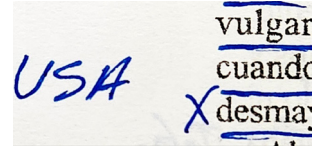 vulgar
USA cuando
X desmay